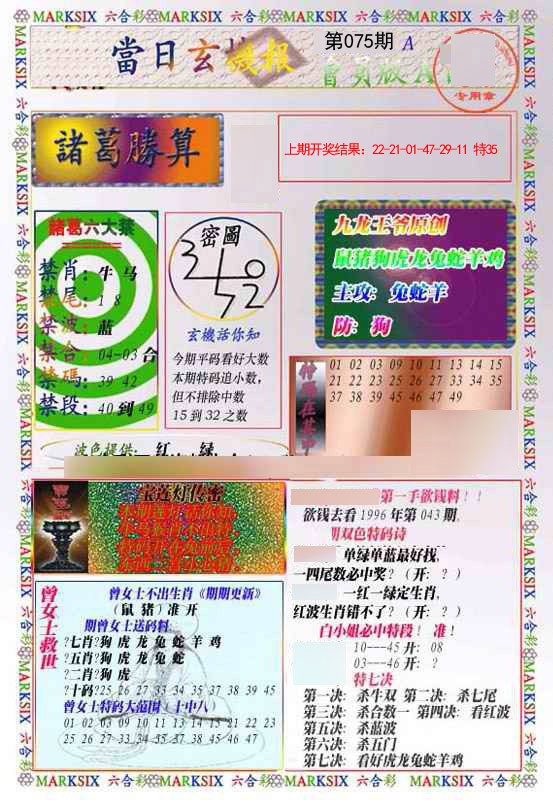 MARKSIX 六合彩 MARKSIX 六合彩 MARKSIX 六合彩 MARKSIX 六合彩
當日玄機報
第075期 A
會員版A
专用章
諸葛勝算
上期开奖结果：22-21-01-47-29-11 特35
諸葛六大禁
禁肖：牛 马
禁尾：1 8
禁波：蓝
禁合：04-03 合
禁碼：39 42
禁段：40 到 49
密圖
玄機話你知
今期平码看好大数
本期特码追小数,
但不排除中数
15 到 32 之数
九龙王爷原创
鼠猪狗虎龙兔蛇羊鸡
主攻：兔蛇羊
防：狗
特碼在其中
01 02 03 09 10 11 13 14 15
21 22 23 25 26 27 33 34 35
37 38 39 45 46 47 49
波色提供： 红 绿
宝莲灯传密
曾女士救世
曾女士不出生肖《期期更新》
（鼠 猪）准 开
期曾女士送码料：
?七肖?狗 虎 龙 兔 蛇 羊 鸡
?五肖?狗 虎 龙 兔 蛇
?二肖?狗 虎
?十码?25 26 27 33 34 35 37 38 39 45
曾女士特码大范围（十中八）
01 02 03 09 10 11 13 14 15 21 22 23
25 26 27 33 34 35 37 38 45 46 47
第一手欲钱料！！
欲钱去看 1996 年第 043 期,
期双色特码诗
单绿单蓝最好找,
一四尾数必中奖？（开：？）
一红一绿定生肖,
红波生肖错不了？（开：？）
白小姐必中特段！ 准！
10---45 开：08
03---46 开：？
特七决
第一决：杀牛双 第二决：杀七尾
第三决：杀合数一 第四决：看红波
第五决：杀蓝波
第六决：杀五门
第七决：看好虎龙兔蛇羊鸡
MARKSIX 六合彩 MARKSIX 六合彩 MARKSIX 六合彩 MARKSIX 六合彩